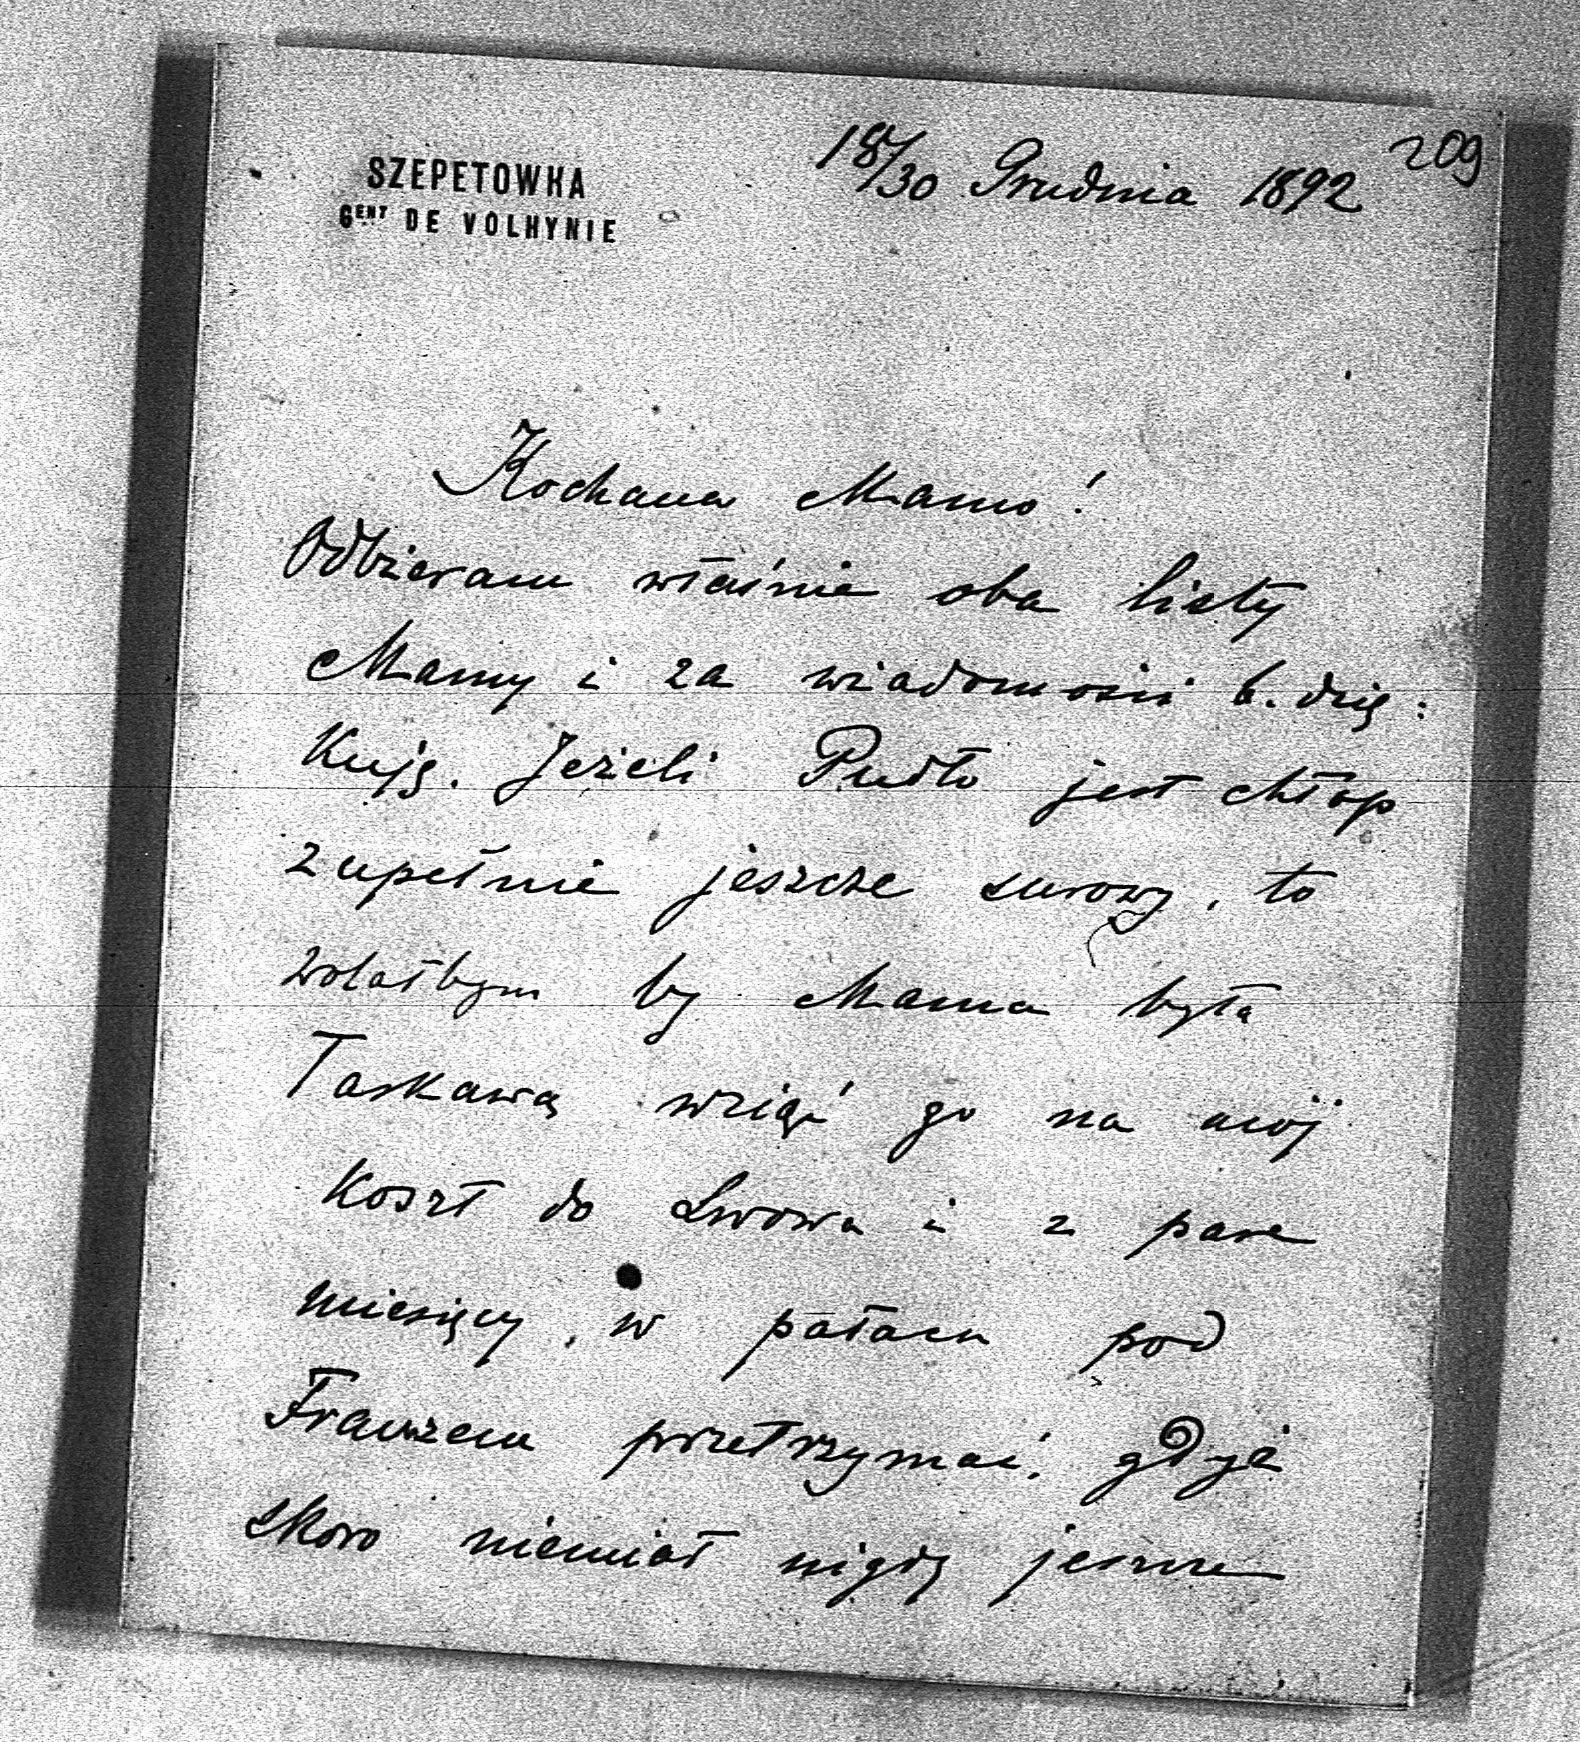 209
18/30 Grudnia 1892
SZEPETOWKA
GENT DE VOLHYNIE
Kochana Mamo!
Odbieram właśnie oba listy
Mamy i za wiadomości b. dzię:
kuję. Jeżeli Pudło jest chłop
zupełnie jeszcze surowy, to
wolałbym by Mama była
łaskawą wziąć go na mój
koszt do Lwowa i z pare
miesięcy, w pałacu pod
Franzem przetrzymać, gdyż
skoro niemiał nigdy jeszcze